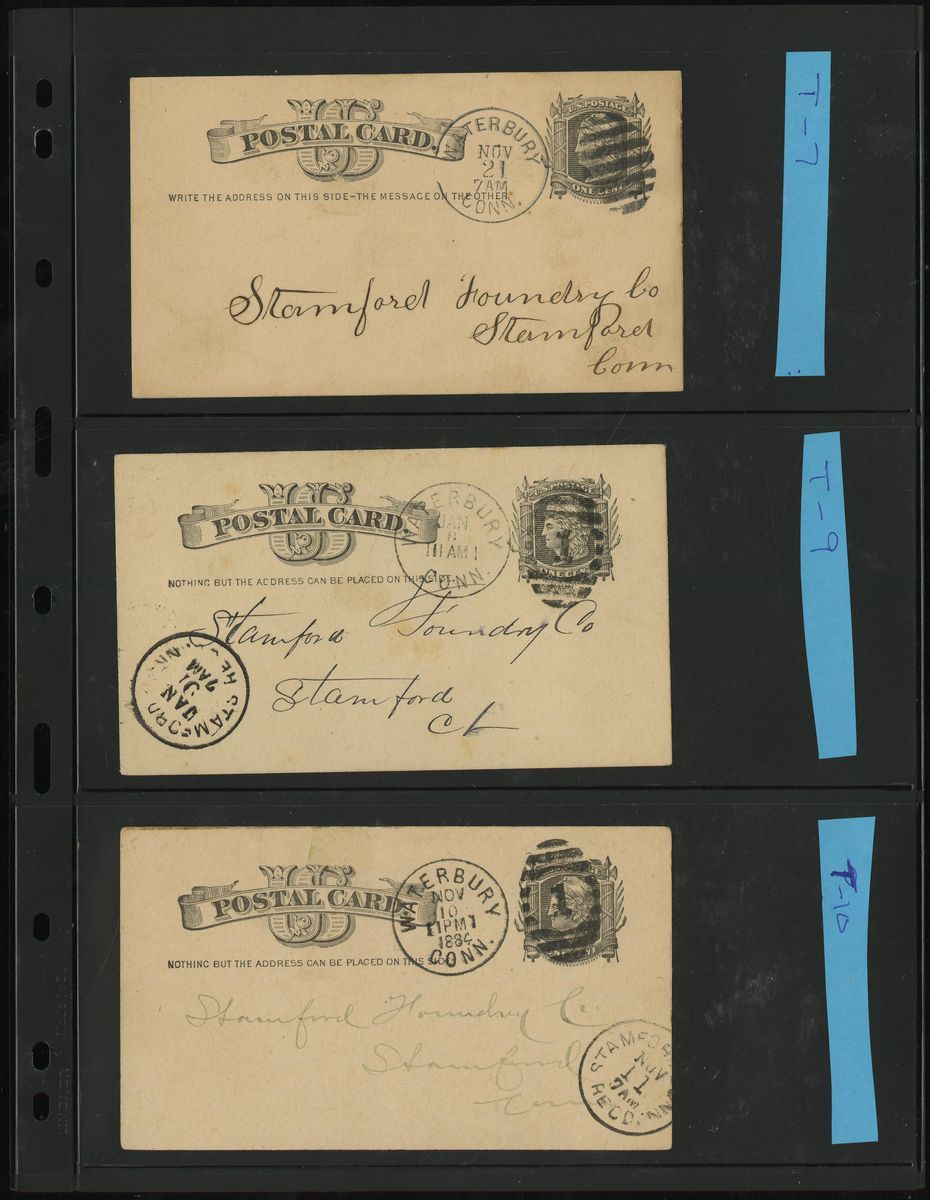 US
POSTAL CARD.
WRITE THE ADDRESS ON THIS SIDE-THE MESSAGE ON THE OTHER
WATERBURY
NOV
21
7AM
CONN.
U.S. POSTAGE
ONE CENT
Stamford Foundry Co
Stamford
Conn
T-7
US
POSTAL CARD.
NOTHING BUT THE ADDRESS CAN BE PLACED ON THIS SIDE.
WATERBURY
JAN
8
11AM
CONN.
U.S. POSTAGE
ONE CENT
1
Stamford Foundry Co
Stamford
Ct
STAMFORD
JAN
7AM
T-9
US
POSTAL CARD
NOTHING BUT THE ADDRESS CAN BE PLACED ON THIS SIDE
WATERBURY
NOV
10
1PM
1884
CONN.
1
Stamford Foundry Co.
Stamford
Conn
STAMFORD
NOV
11
7AM
REC'D.
T-10
LINDNER